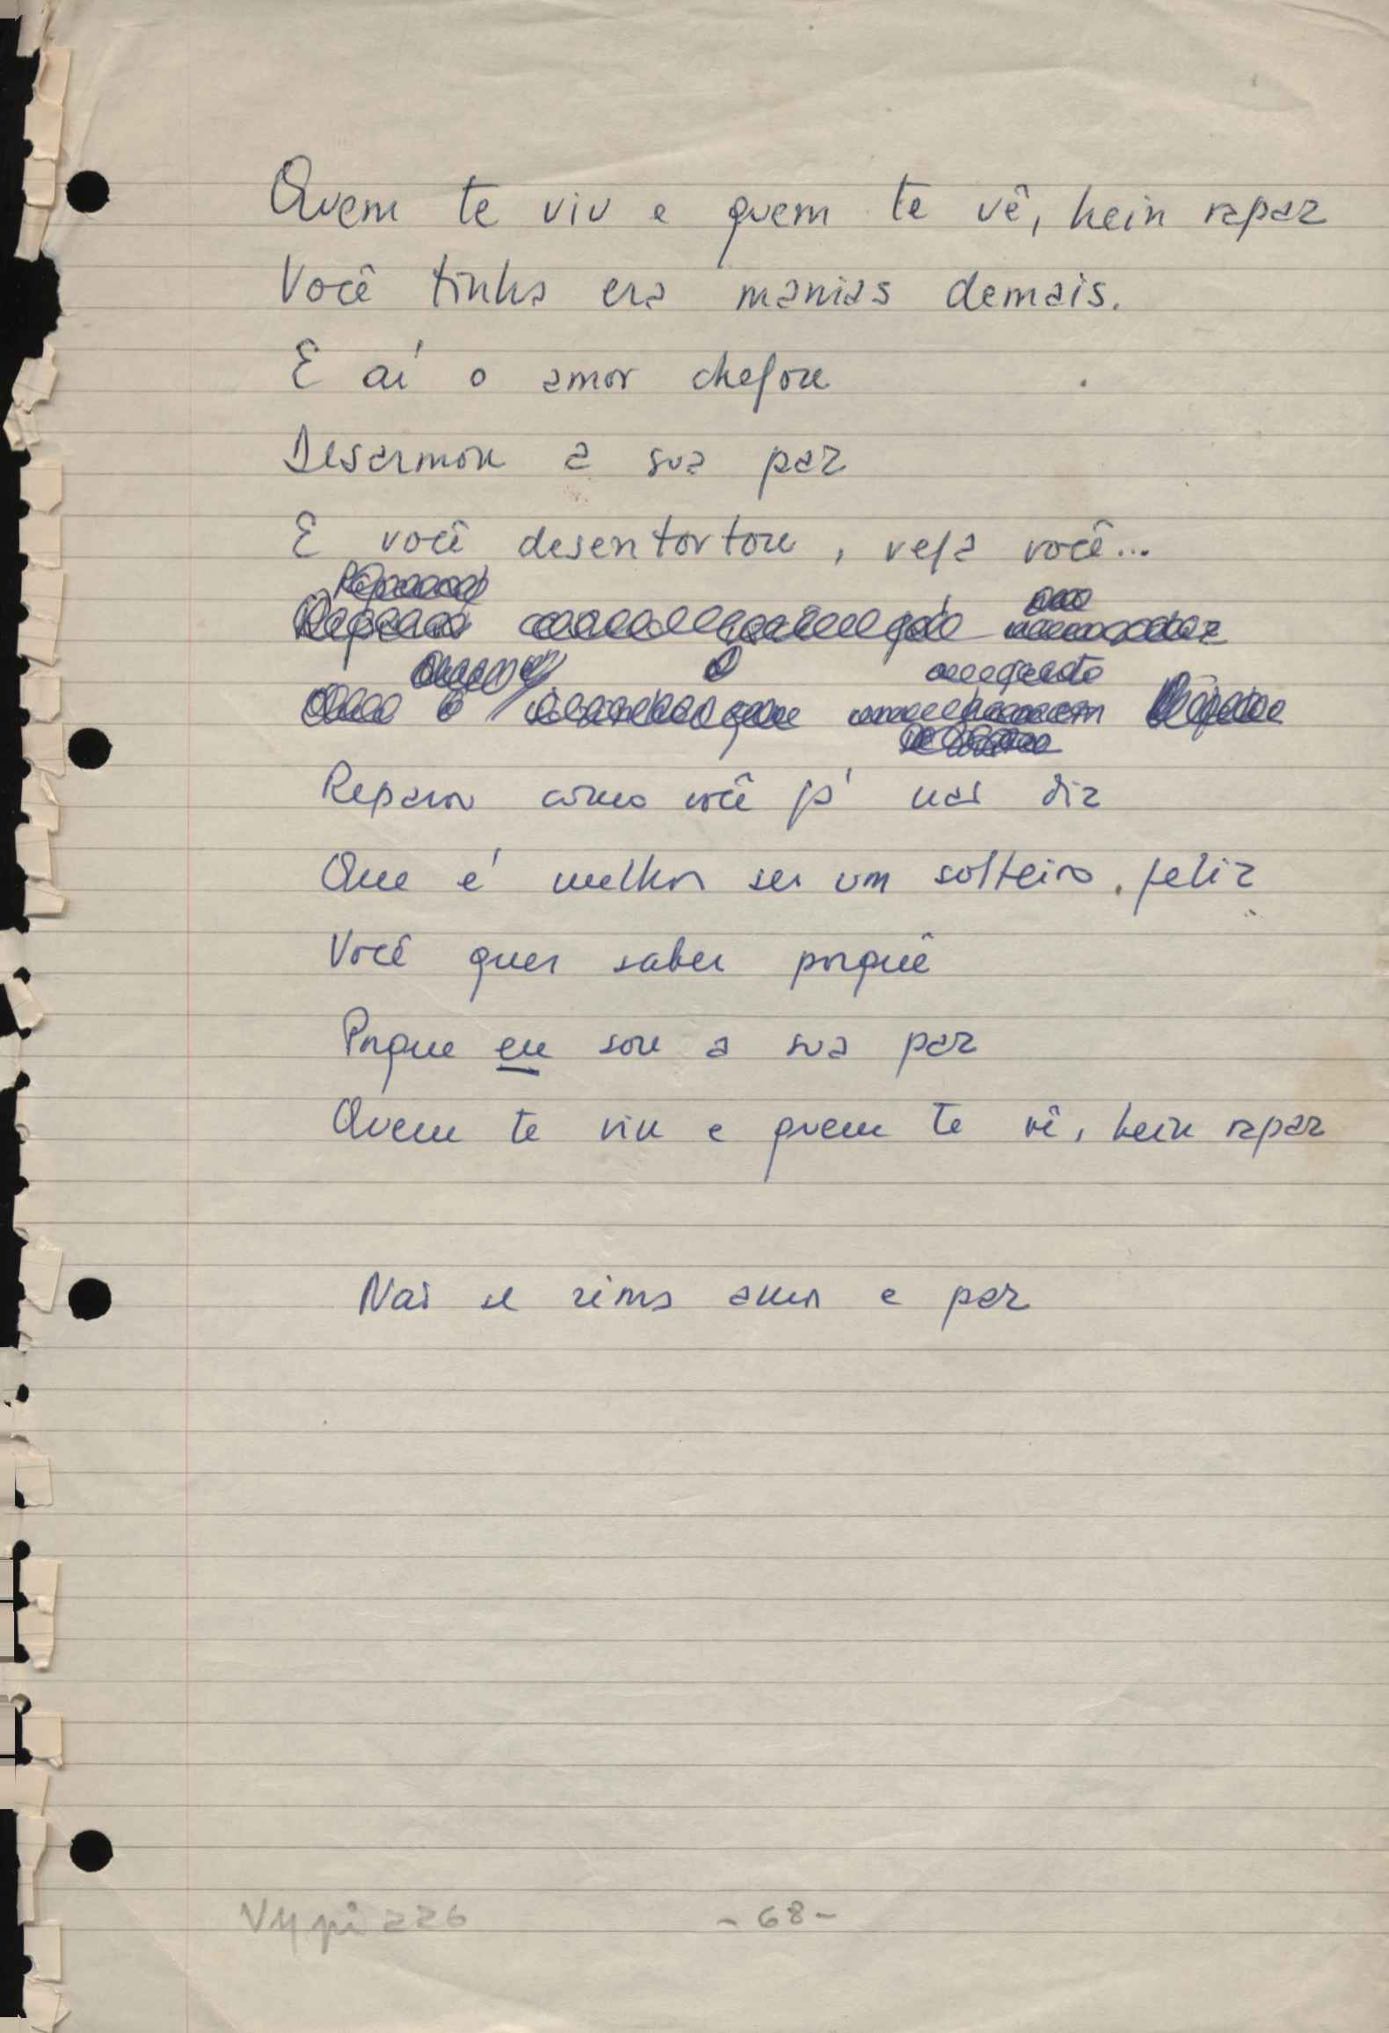 Quem te viu e quem te vê, hein rapaz
Você tinha era manias demais.
E aí o amor chegou
Desarmou a sua paz
E você desentortou, veja você...
Reparou como você já não diz
Que é melhor ser um solteiro feliz
Você quer saber porquê
Porque eu sou a sua paz
Quem te viu e quem te vê, hein rapaz
Não se rima amor e paz
VM pi 226
- 68 -